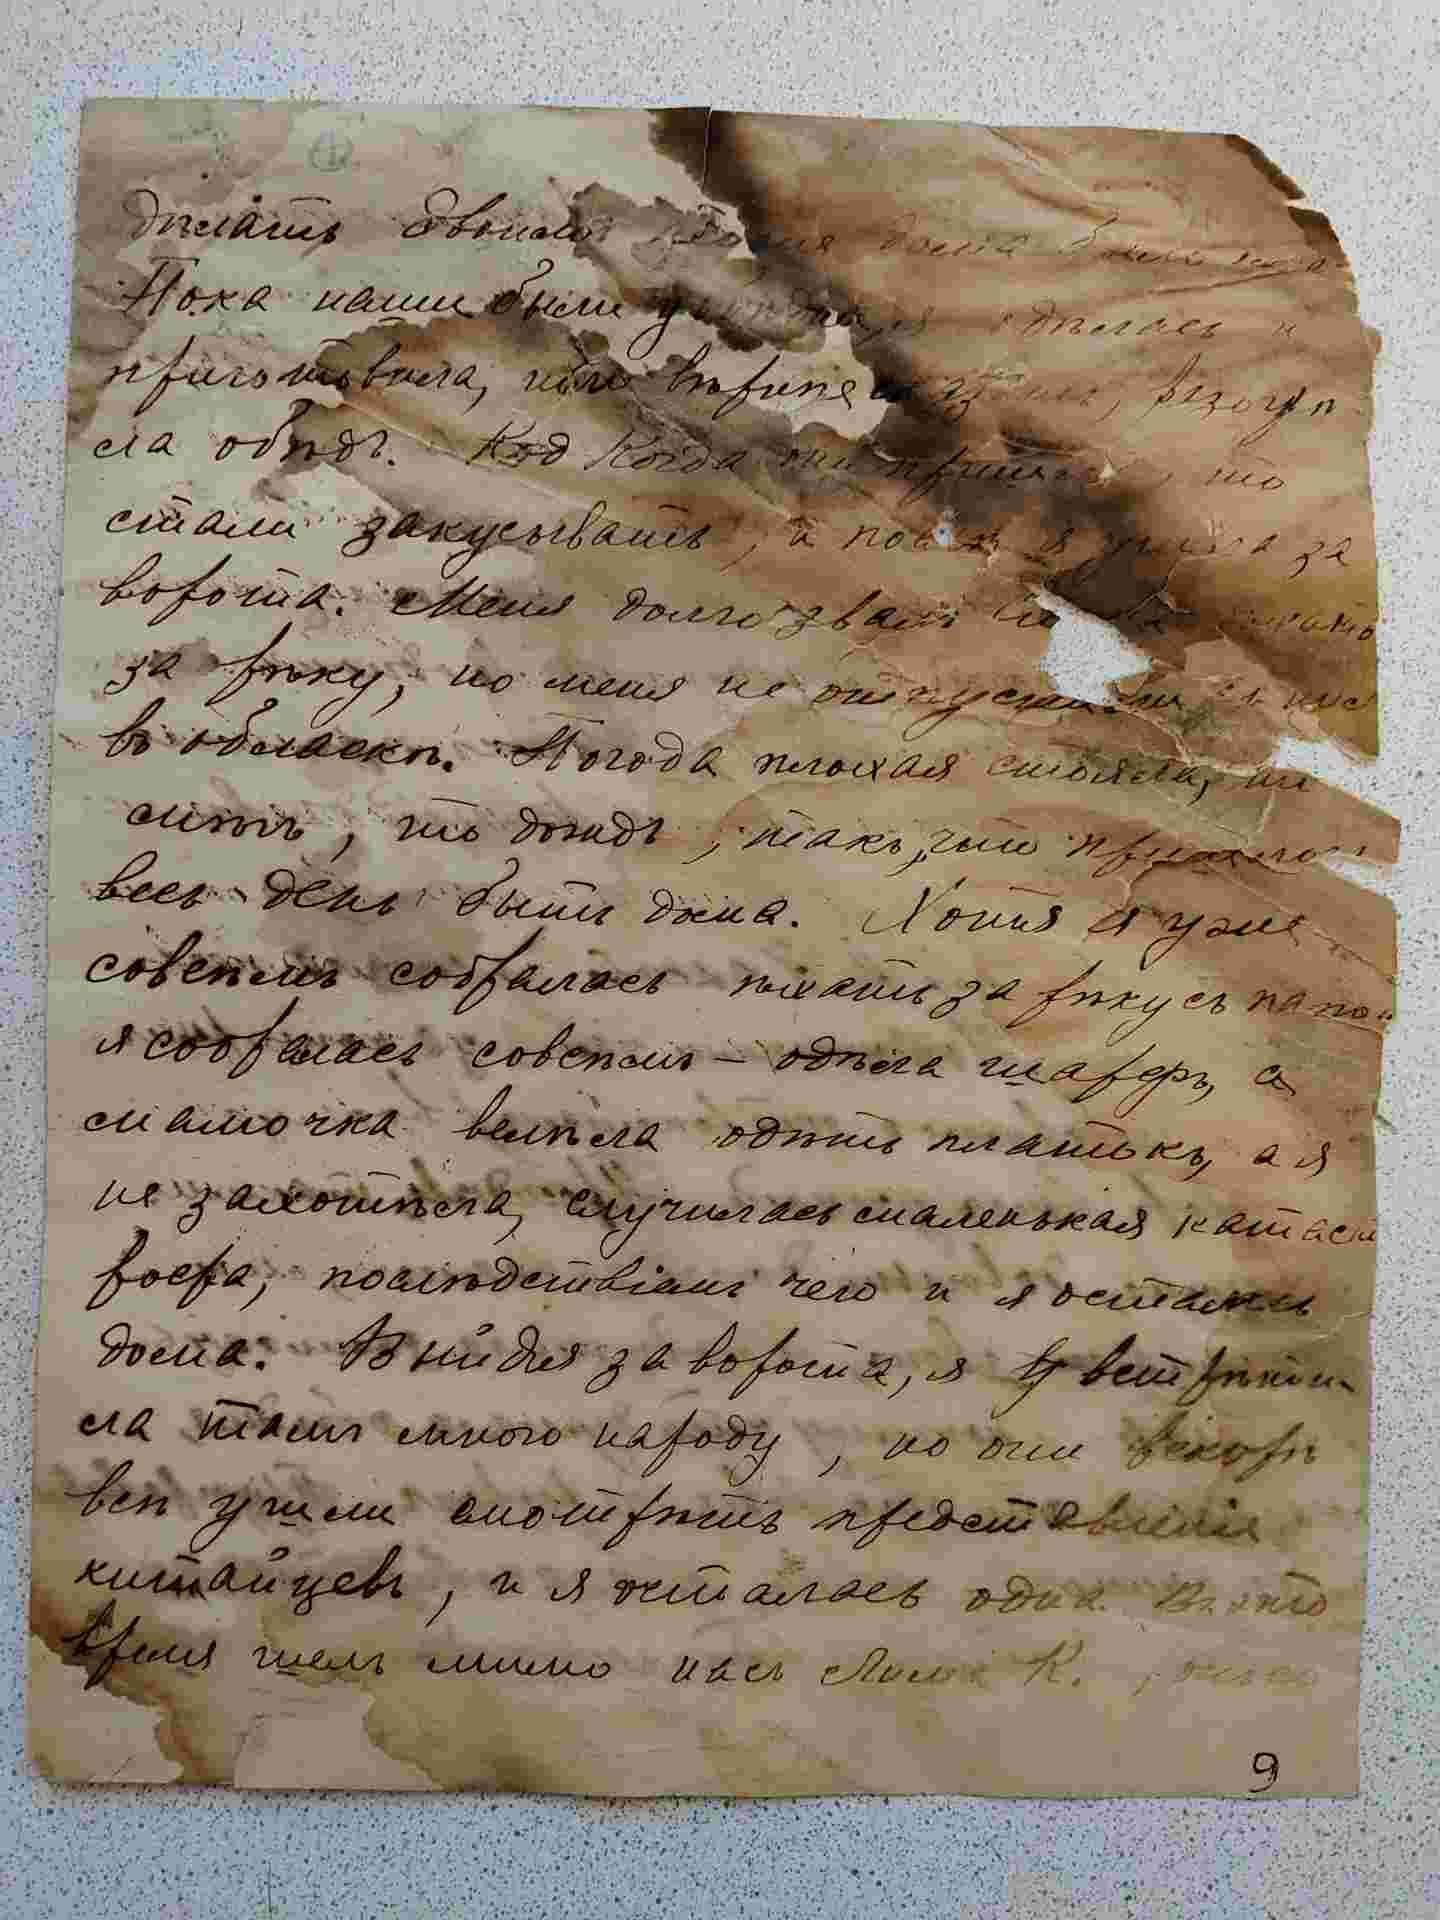 дѣлать дома
Пока наши были одѣлась и
приготовила, разогрѣ
ла обѣдъ. Код Когда они пришли, то
стали закусывать, а я ушла за
ворота. Меня долго звали
за рѣку, но меня не отпустили
въ обласкѣ. Погода плохая стояла, то
снѣгъ, то дождь, такъ, что пришлось
весь день быть дома. Хотя я уже
совсѣмъ собралась ѣхать за рѣку съ папой
я собралась совсѣмъ – одѣла шарфъ, а
мамочка велѣла одѣть платокъ, а я
не захотѣла, случилась маленькая катаст
рофа, послѣдствіемъ чего и я осталась
дома. Выйдя за ворота, я встрѣти-
ла тамъ много народу, но они вскорѣ
всѣ ушли смотрѣть представленія
китайцевъ, и я осталась одна. Въ это
время шелъ мимо насъ К.,
9